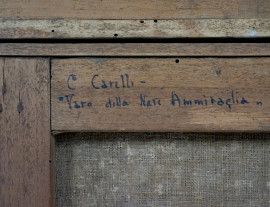 C. Carelli -
"Varo della Nave Ammiraglia"